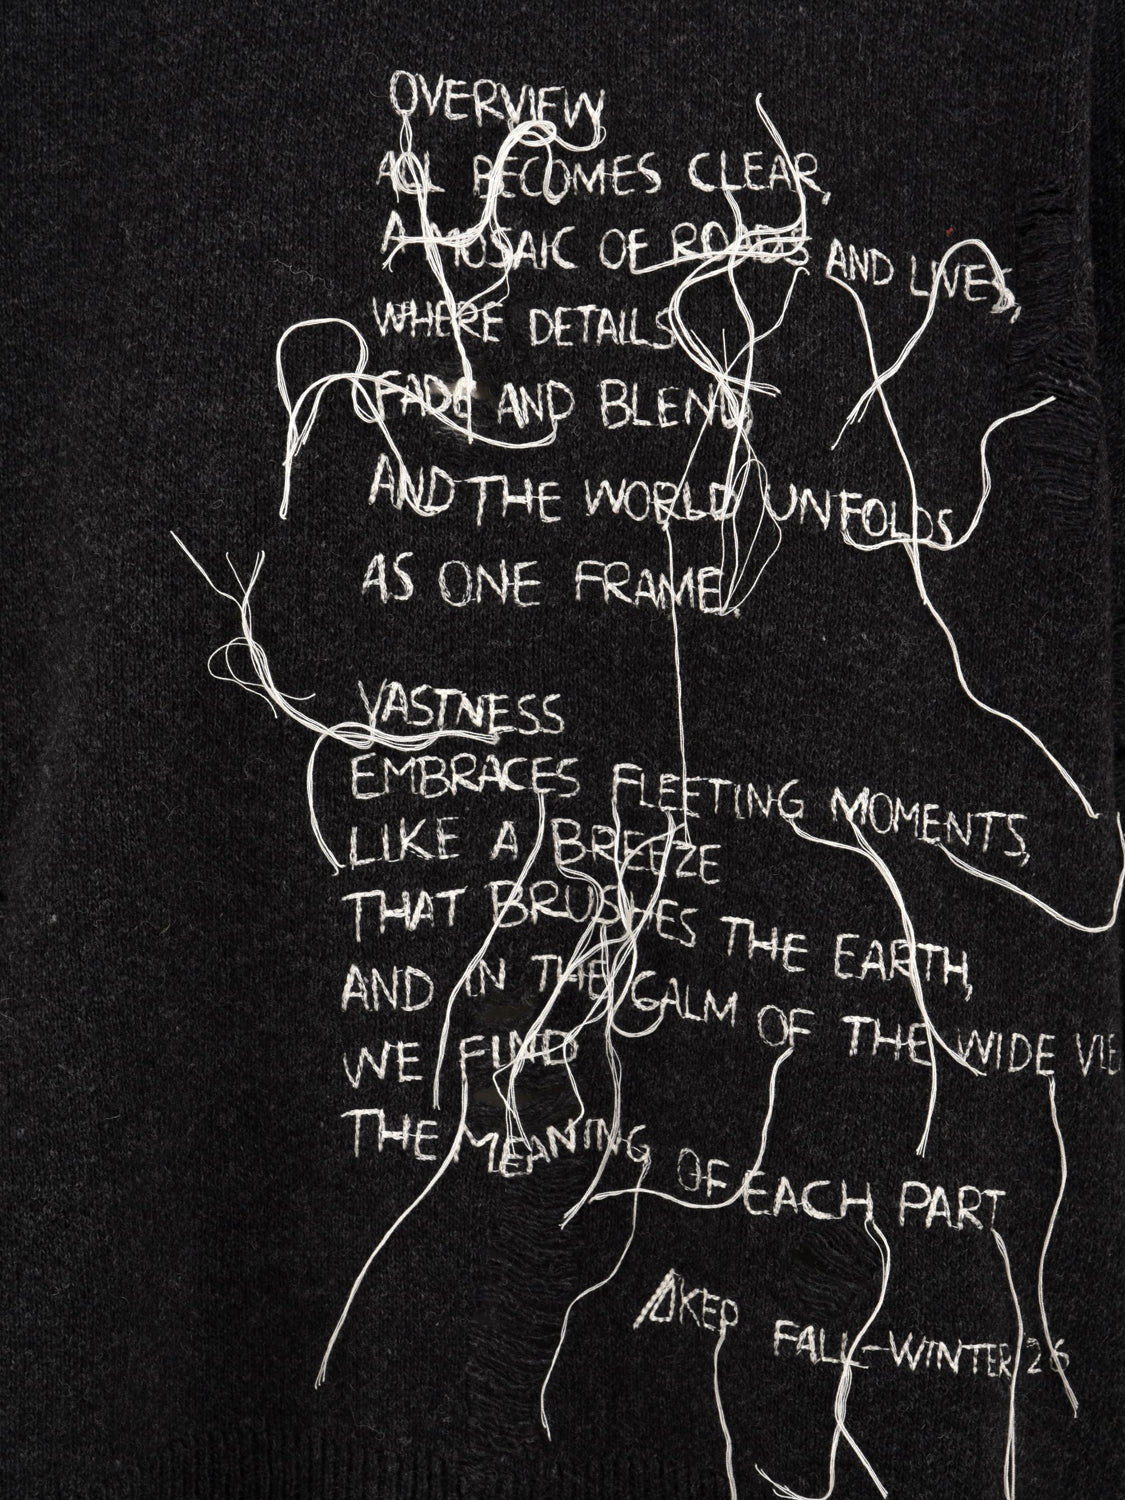 OVERVIEW
ALL BECOMES CLEAR,
A MOSAIC OF ROADS AND LIVES,
WHERE DETAILS
FADE AND BLEND
AND THE WORLD UNFOLDS
AS ONE FRAME.
VASTNESS
EMBRACES FLEETING MOMENTS,
LIKE A BREEZE
THAT BRUSHES THE EARTH,
AND IN THE CALM OF THE WIDE VIE
WE FIND
THE MEANING OF EACH PART
AKEP FALL-WINTER 26